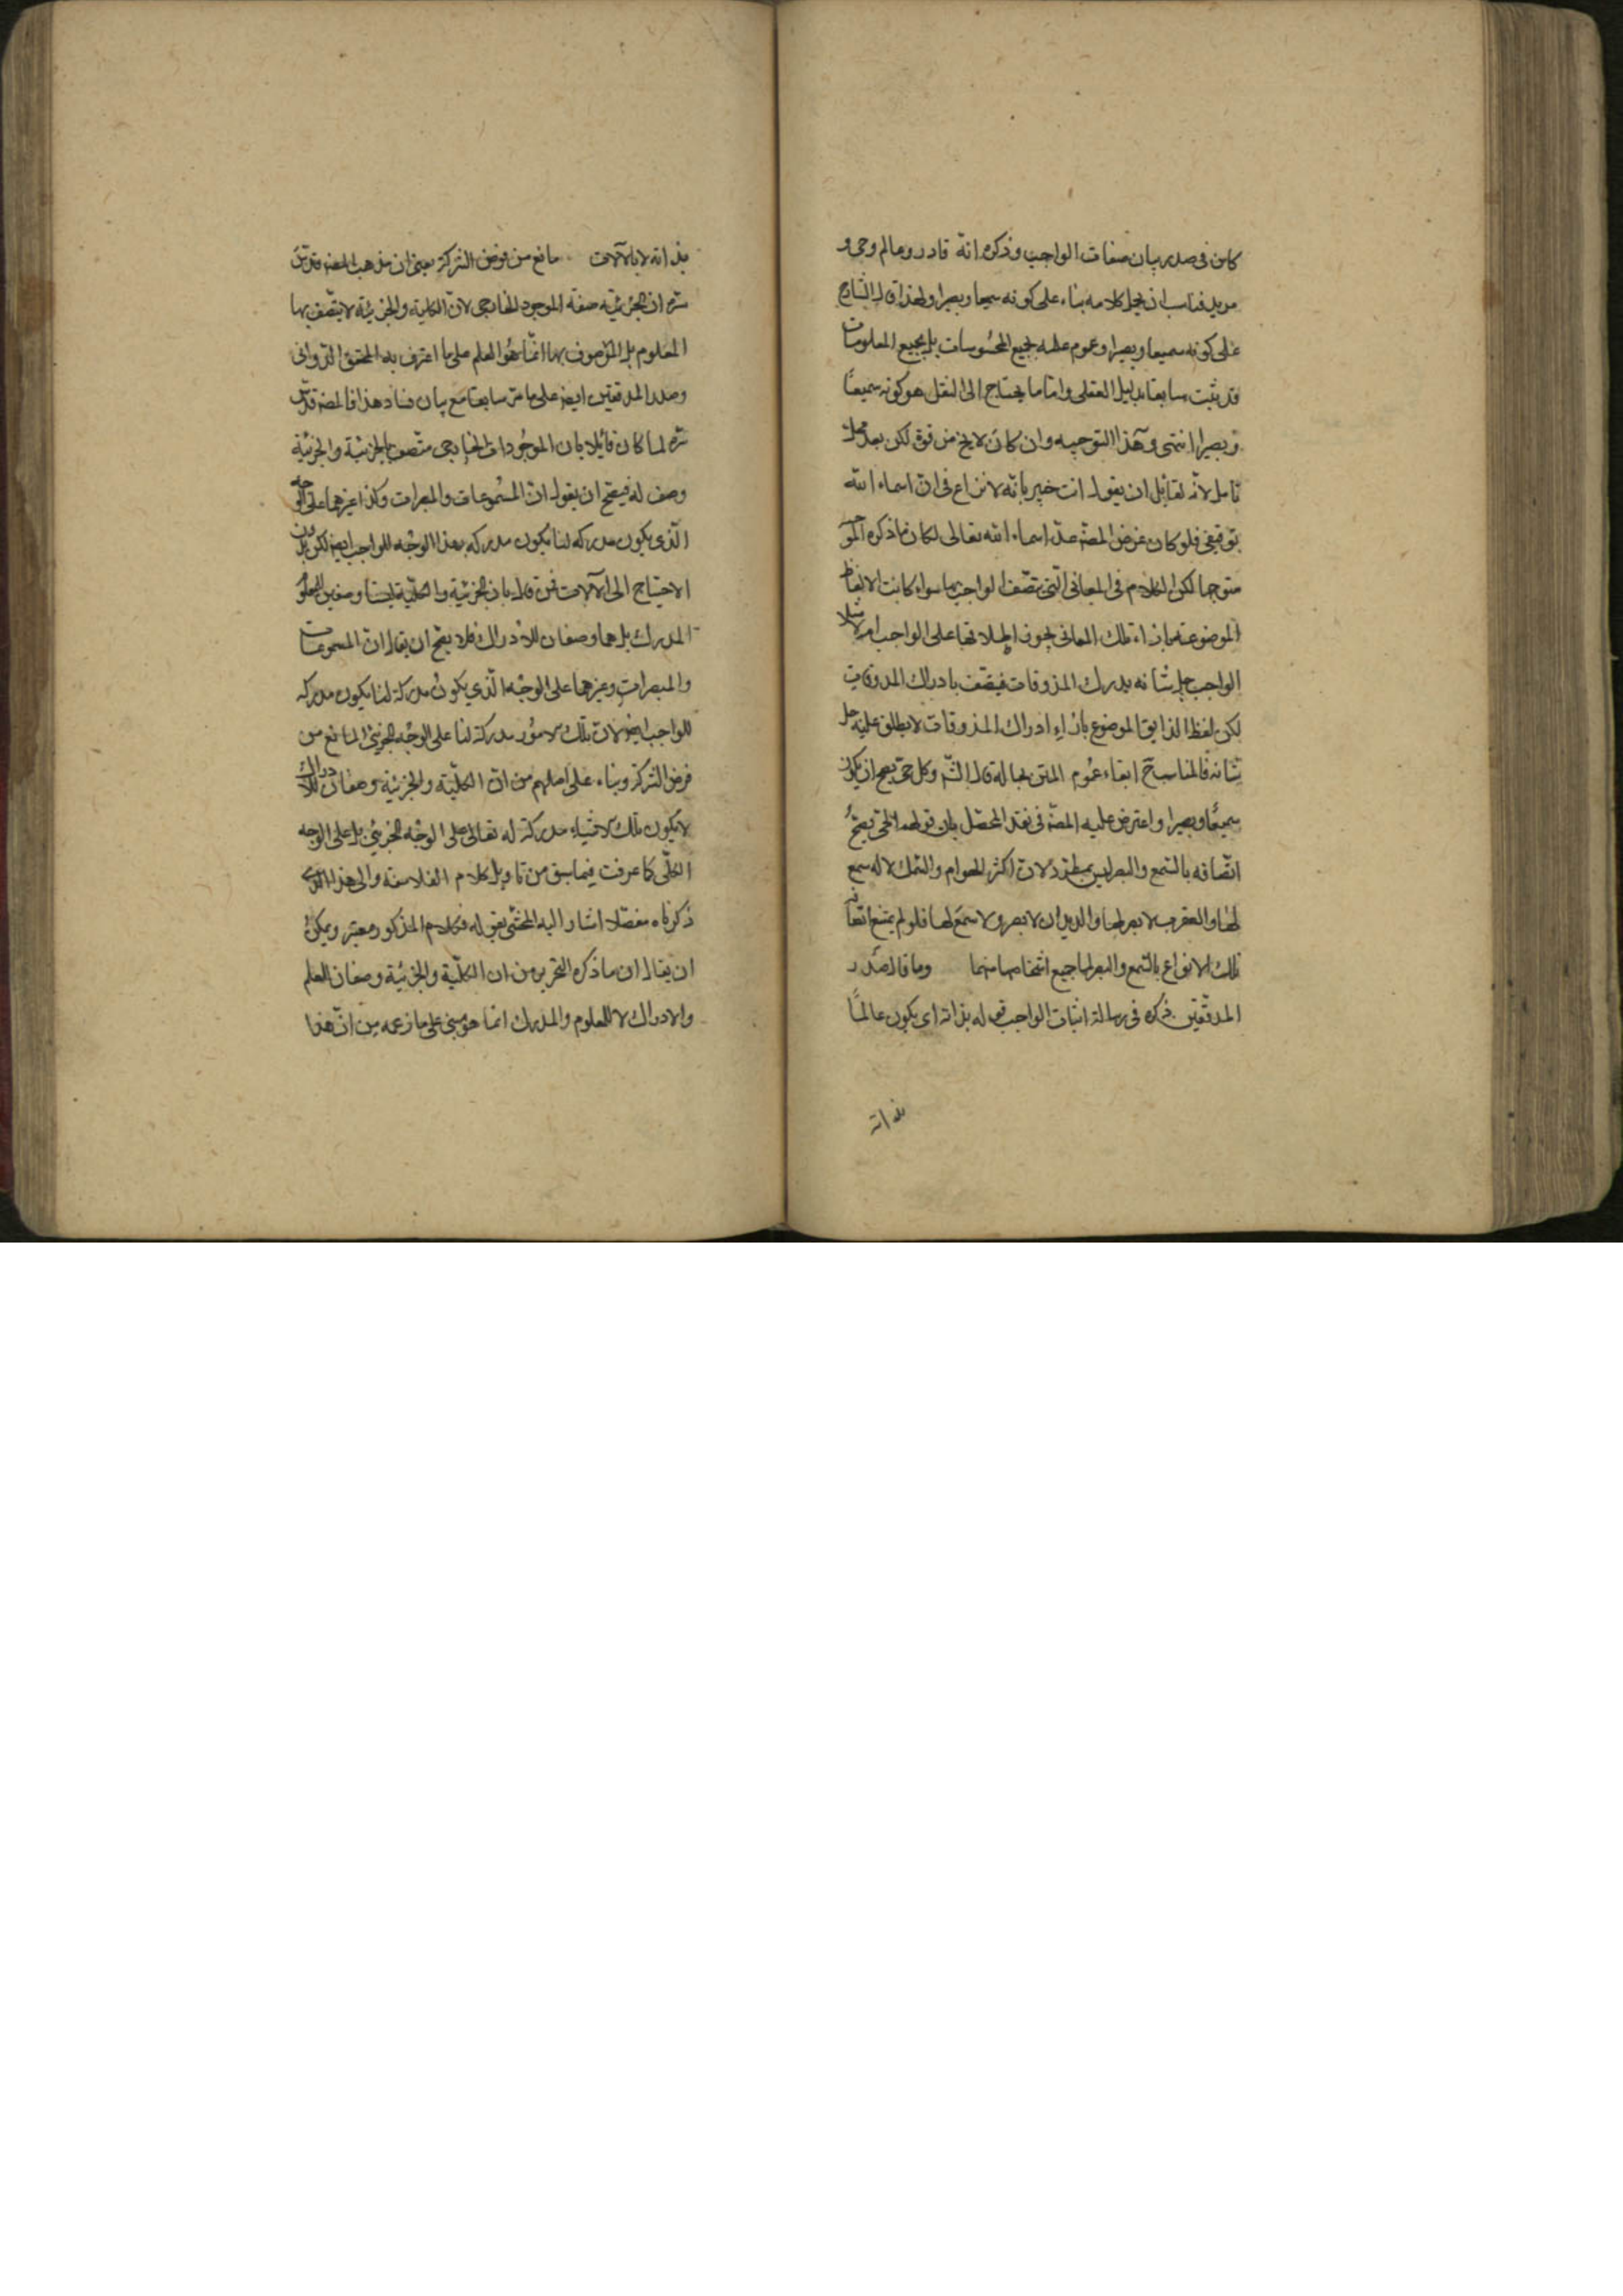 كان فى صدر بيان صفات الواجب وذكر انه قادر وعالم وحى و
مريد فناسب ان يحمل كلامه بناء على كونه سميعا وبصيرا ولهذا قال الشارح
على كونه سميعا وبصيرا وعموم علمه بجميع المحسوسات بل بجميع المعلومات
قد ثبت سابقا بدليل العقلى واما ما يحتاج الى النقل هو كونه سميعًا
وبصيرا انتهى وهذا التوجيه وان كان لا يخ من قوة لكن بعد محل
تامل لانه لقائل ان يقول انت خبير بانه لا نزاع فى ان اسماء الله
توقيفى فلو كان غرض المصه عدّ اسماء الله تعالى لكان ما ذكره الموجه
متوجها لكن الكلام فى المعانى التى يتصف الواجب بها سواء كانت الالفاظ
الموضوعة بازاء تلك المعانى يجوز اطلاقها على الواجب ام لا مثلا
الواجب جل شانه يدرك المذوقات فيتصف بادراك المذوقات
لكن لفظ الذايق الموضوع بازاء ادراك المذوقات لا يطلق عليه جل
شانه فالمناسب ح ابقاء عموم المتن بحاله قال الشه وكل حى يصح ان يكون
سميعًا وبصيرا واعترض عليه المصه فى نقد المحصل بان قولهم الحى يصحّ
اتصافه بالسمع والبصر ليس بمطرد لان اكثر الهوام والسمك لا له سمع
لها والعقرب لا بصر لها والديدان لا بصر ولا سمع لها فلو لم يمتنع اتصاف
تلك الانواع بالسمع والبصر لما جميع اشخاصها منهما وما قال صدر
المدققين ذكره فى رسالة اثبات الواجب قوله بذاته اى يكون عالمًا
بذاته
بذاته لا بالآلات مانع من فرض الشركة يعنى ان مذهب المصه قدس
سره ان الجزئية صفة الموجود الخارجى لان الكلية والجزئية لا يتصف بها
المعلوم بل الموصوف بها انما هو العلم على ما اعترف به المحقق الدوانى
وصدر المدققين ايضه على ما مرّ سابقا مع بيان فساد هذا فالمصه قدس
سره لما كان قائلا بان الموجودات الخارجى متصف بالجزئية والجزئية
وصف له فيصح ان يقول ان المسموعات والمبصرات وكذا غيرهما على الوجه
الذى يكون مدركه لنا يكون مدركه بهذا الوجه للواجب ايضه لكن بدون
الاحتياج الى الآلات فمن قال بان الجزئية والكلية ليستا وصفين للمعلوم
المدرك بل هما وصفان للادراك فلا يصح ان يقال ان المسموعات
والمبصرات وغيرهما على الوجه الذى يكون مدركة لنا يكون مدركه
للواجب ايضه لان تلك الامور مدركة لنا على الوجه الجزئى المانع من
فرض الشركة وبناء على اصلهم من ان الكلية والجزئية وصفان للادراك
لا يكون تلك الاشياء مدركة له تعالى على الوجه الجزئى بل على الوجه
الكلّى كما عرفت فيما سبق من تاويل كلام الفلاسفة والى هذا الذى
ذكرناه مفصّلا اشار اليه المحشى بقوله فكلام المذكور معتبر ويمكن
ان يقال ان ما ذكره التحرير من ان الكلّية والجزئية وصفان للعلم
والادراك لا للمعلوم والمدرك انما هو مبنى على ما زعمه من ان هذا